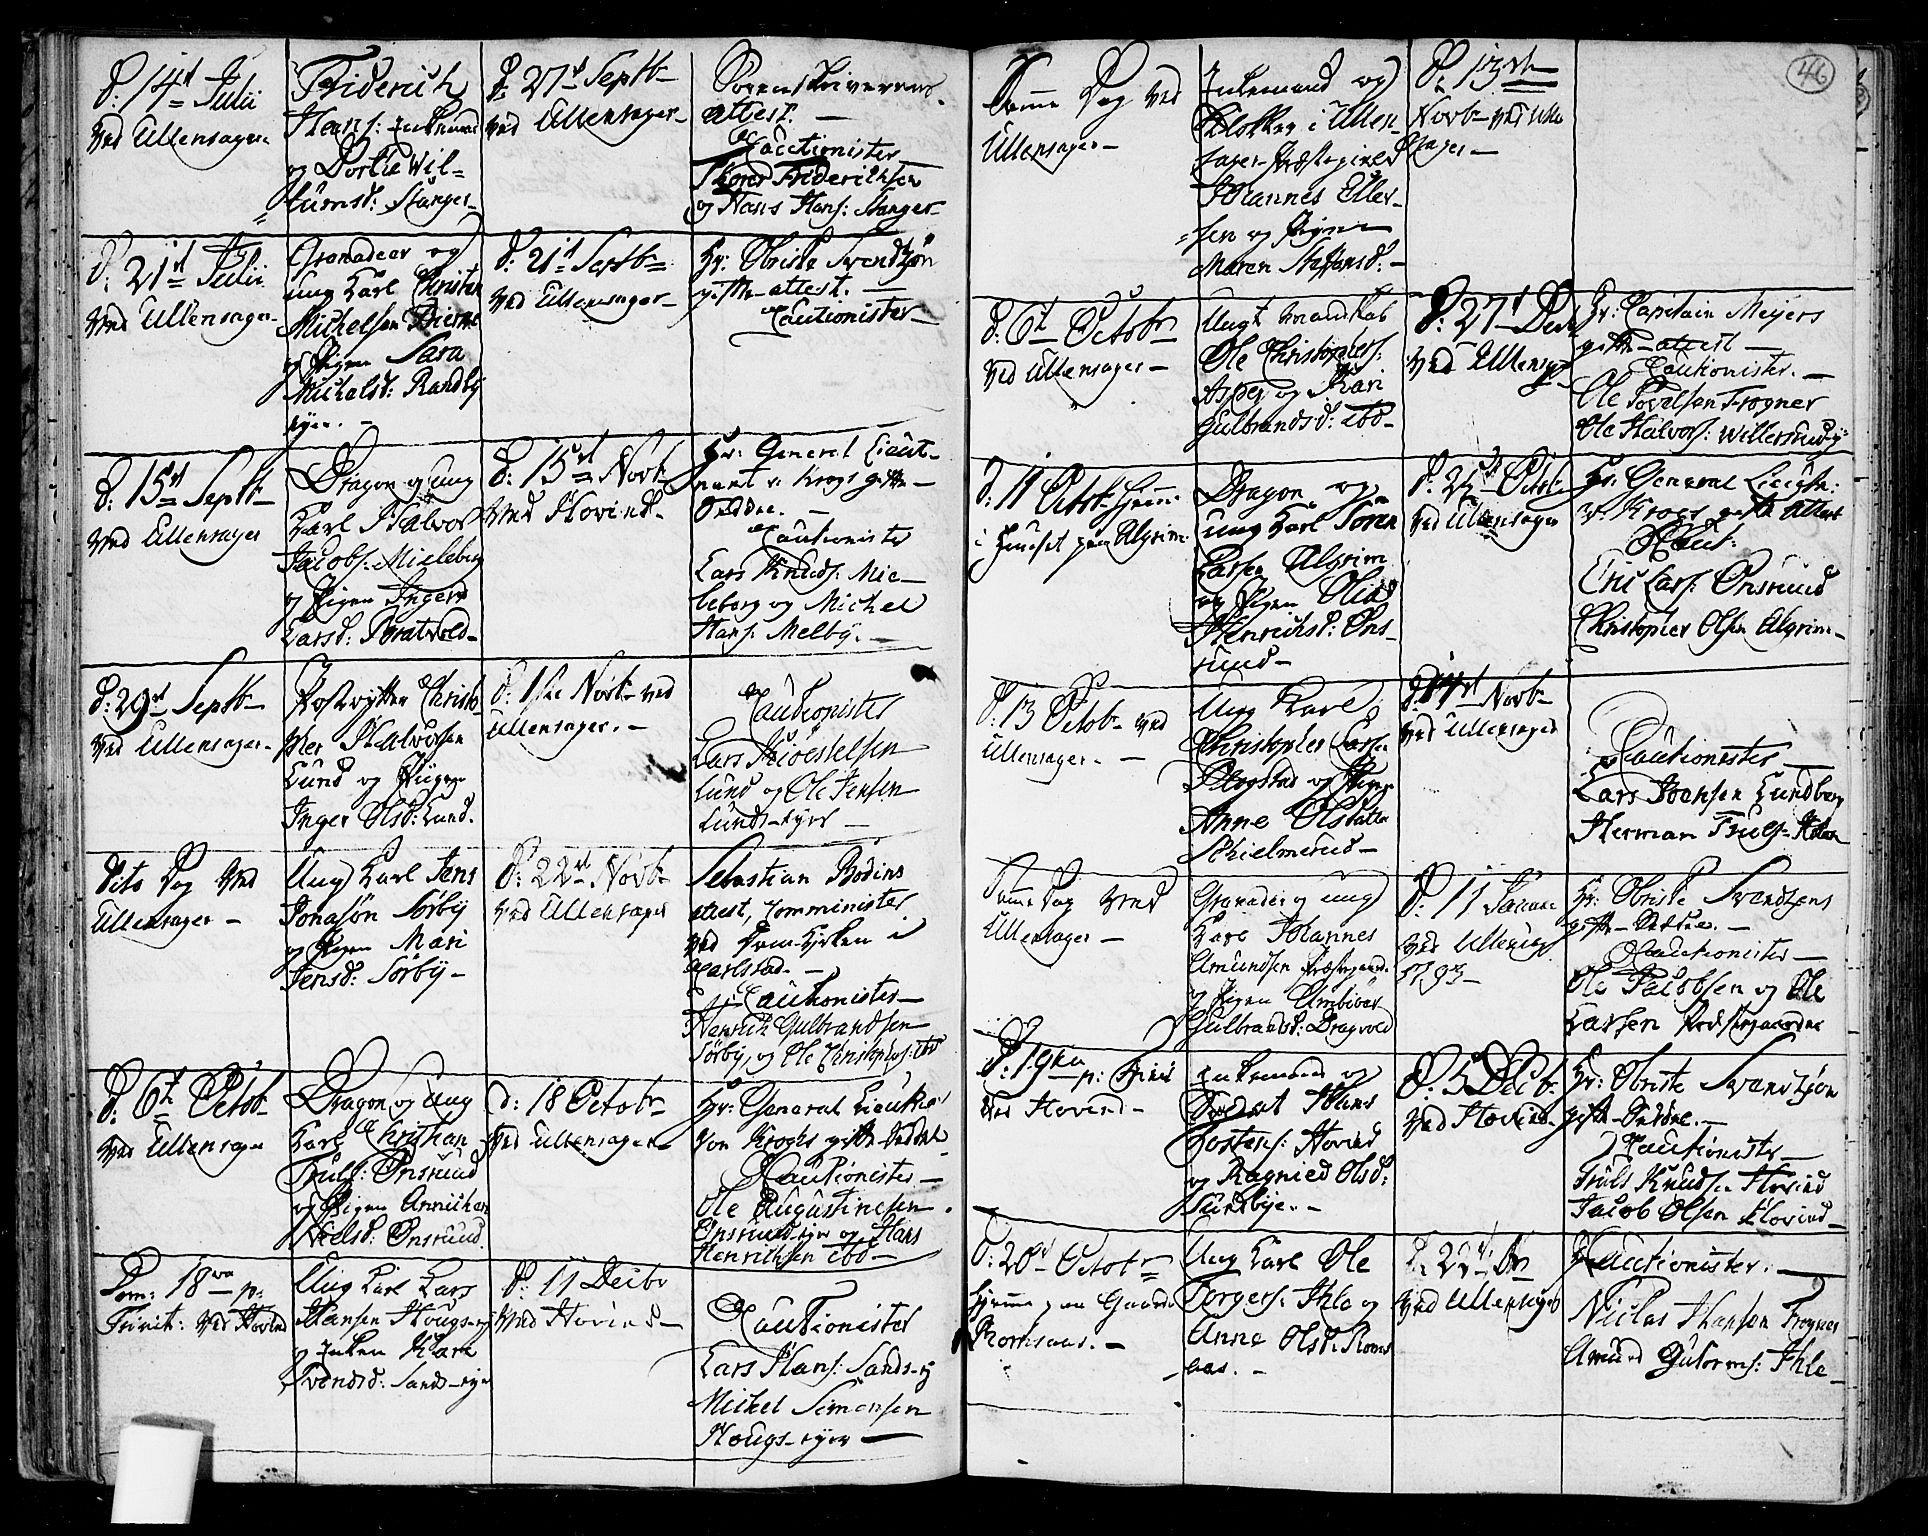 D: 14t Julii
ved Ullensager
Friderich
Hans: Enkemand
og Dorte Wil=
lumsd: Stanger
D: 27t Septb
ved Ullensager
Sorenskriverens
attest.
Cautionister
Friderichsen
og Hans Hans: Stanger
D: 21t Julii
ved Ullensager
Granadeer og
ung Karl Christen
Michelsen
og Pigen Sara
Michelsd: Randby
eyer.
D: 21t Septb
ved Ullensager
Hr: Obriste Svendsøn
gifte attest.
Cautionister
D: 15t Septb
ved Ullensager
Dragon og ung
Karl Halvor
Jacobs: Mieleborg
og Pigen Inger
Larsd:
D: 15t Novb
ved Hovind
Hr: General Lieut-
nant v: Krogs gifte
Seddel.
Cautionister
Lars Knuds: Mie-
leborg og Michel
Hans: Melby.
D: 29t Septb
ved Ullensager
Christo-
pher Halvorsen
Lund og Pigen
Inger Olsd: Lund.
D: 1ste Novb ved
Ullensager.
Cautionister
Lars
Lund og Ole Jensen
Lunds-eyer
Dito Dag ved
Ullensager
Ung Karl Jens
Jonasøn Sørby
og Pigen Mari
Jensd: Sørby
D: 22d Novb
ved Ullensager
Sebastian Bodins
attest, Comminister
ved Dom-Kirken i
Carlstad.
Cautionister
Henrich Gulbrandsen
Sørby, og Ole Christophs: ibd
D: 6t Octob
ved Ullensager
Dragon og ung
Karl Christian
Truls: Onsrud
og Pigen Annichen
Nielsd: Onsrud
D: 18 Octobr
ved Ullensager
Hr: General Lieutnant
von Kroghs gifte-Seddel
Cautionister
Ole Augustinesen
Onsrud-eyer og Hans
Henrichsen ibd
Dom: 18va p:
Trinit: ved Hovind
Ung Karl Lars
Hansen Hougs-ey
og Enken Kari
Svendsd: Sands-eyer
D: 11 Decbr
ved Hovind
Cautionister
Lars Hans: Sands-ey
Michel Simensen
Hougs-eyer
46
Samme Dag ved
Ullensager
Enkemand og
Klokker i Ullen-
sager Præstegield
Johannes Eller-
sen og Pigen
Maren Steffensd:
D: 13de
Novb ved Ullen
sager
D: 6t Octob
ved Ullensager
Ungt Mandskab
Ole Christophers:
Asper og Kari
Gulbrandsd: ibd
D: 27d Decb
ved Ullensager
Hr: Capitain Meyers
gifte-attest
Cautionister.
Ole Povelsen Frogner
Ole Halvors: Willersrud ey
D: 11 Octob hjemme
i Huuset paa Algrim
Dragon og
ung Karl Søren
Larsen Algrim
og Pigen Olea
Henrichsd: Ons-
rud
D: 25 Octob
ved Ullensager
Hr: General Lieutn:
v. Krogs gifte attest
Caut:
Eric Lars: Onsrud
Christopher Olsen Algrim
D: 13 Octob ved
Ullensager.
Ung Karl
Christopher Larsen
og Pigen
Anne Olsdatter
Schielmerud
D: 14d Novb
ved Ullensager
Cautionister
Lars Hansen Lundberg
Herman Truls:
Samme Dag ved
Ullensager
Granadeer og ung
Karl Johannes
Amundsen Præstegaard
og Pigen
Gulbrandsd: Dragvold
D: 11 Januar
ved Ullensager
1793
Hr: Obriste Svendsens
gifte-Seddel.
Cautionister
Ole Jacobsen og Ole
Larsen Præstegaarden
D: 19na p: Trinit
ved Hovind
Enkemand og
Soldat Hans
Hovind
og Ragnild Olsd:
Sundbye.
D: 5 Decb
ved Hovind
Hr: Obriste Svendsøn
gifte Seddel.
Cautionister
Truls Knudsen Hovind
Jacob Olsen Hovind
D: 20d Octobr
hjemme paa Gaarden
Romsaas.
Ung Karl Ole
Torgers: Ihle og
Anne Olsd: Roms
aas.
D: 22d Do
ved Ullensager
Cautionister.
Niclas Hansen Frogner
Amund Gutorms: Ihle